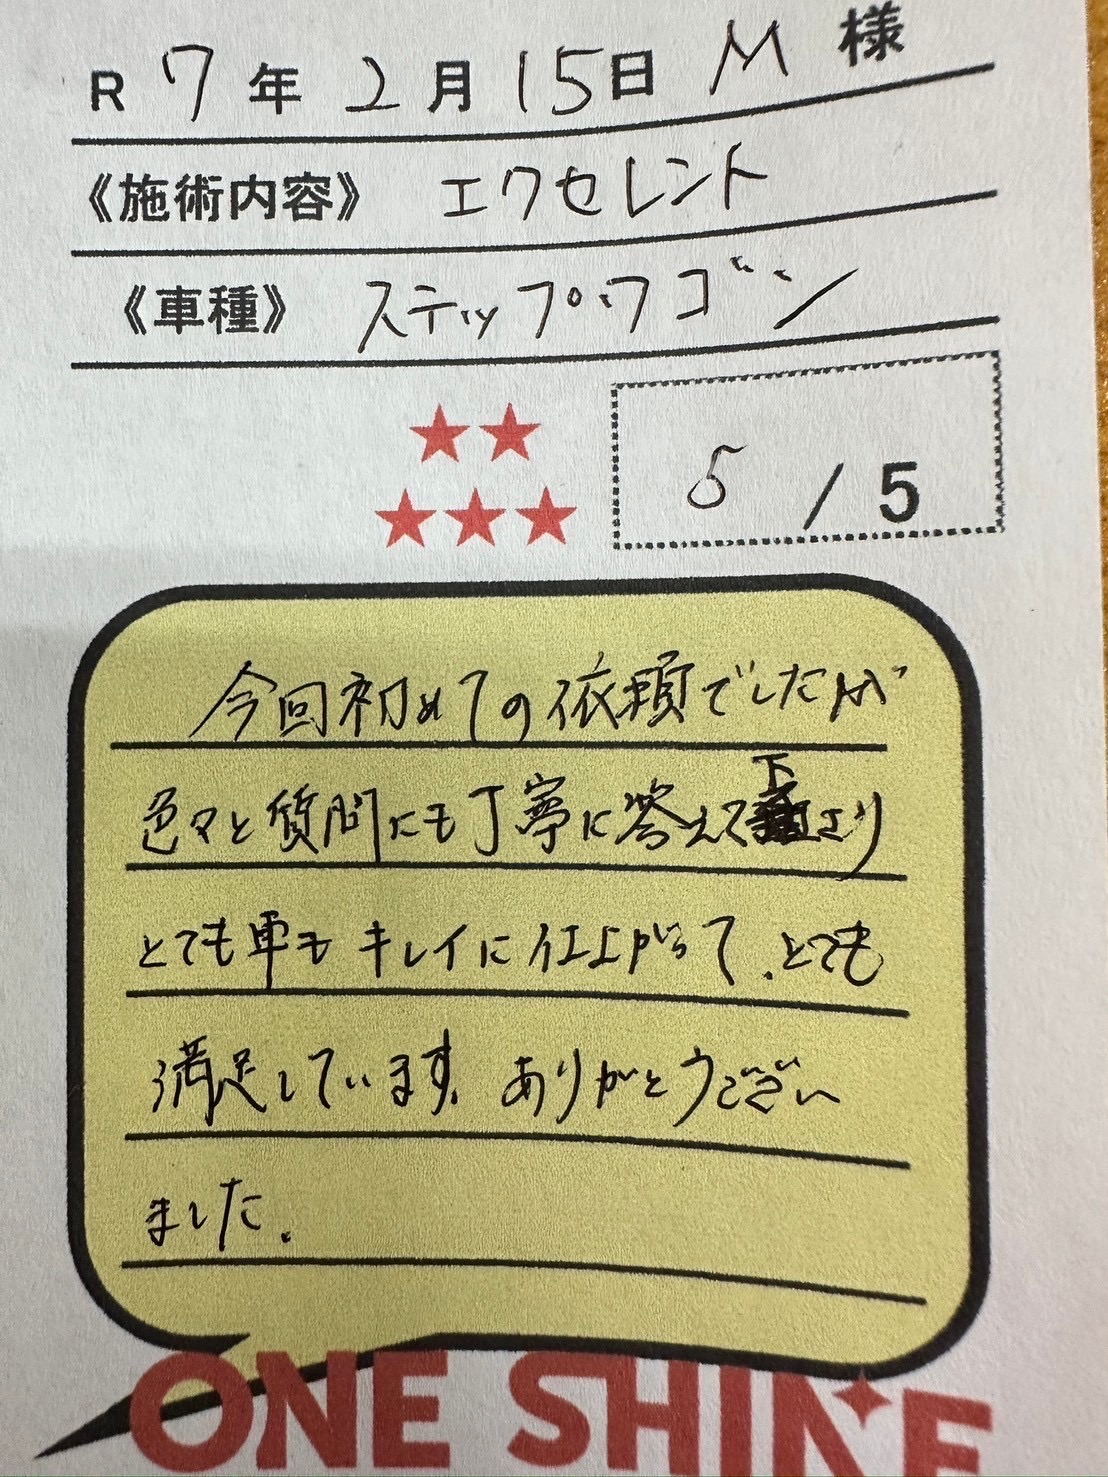 R 7 年 2 月 15 日 M 様
《施術内容》 エクセレント
《車種》 ステップワゴン
5 / 5
今回初めての依頼でしたが
色々と質問にも丁寧に答えて下さり
とても車もキレイに仕上がって、とても
満足しています。ありがとうござい
ました。
ONE SHINE